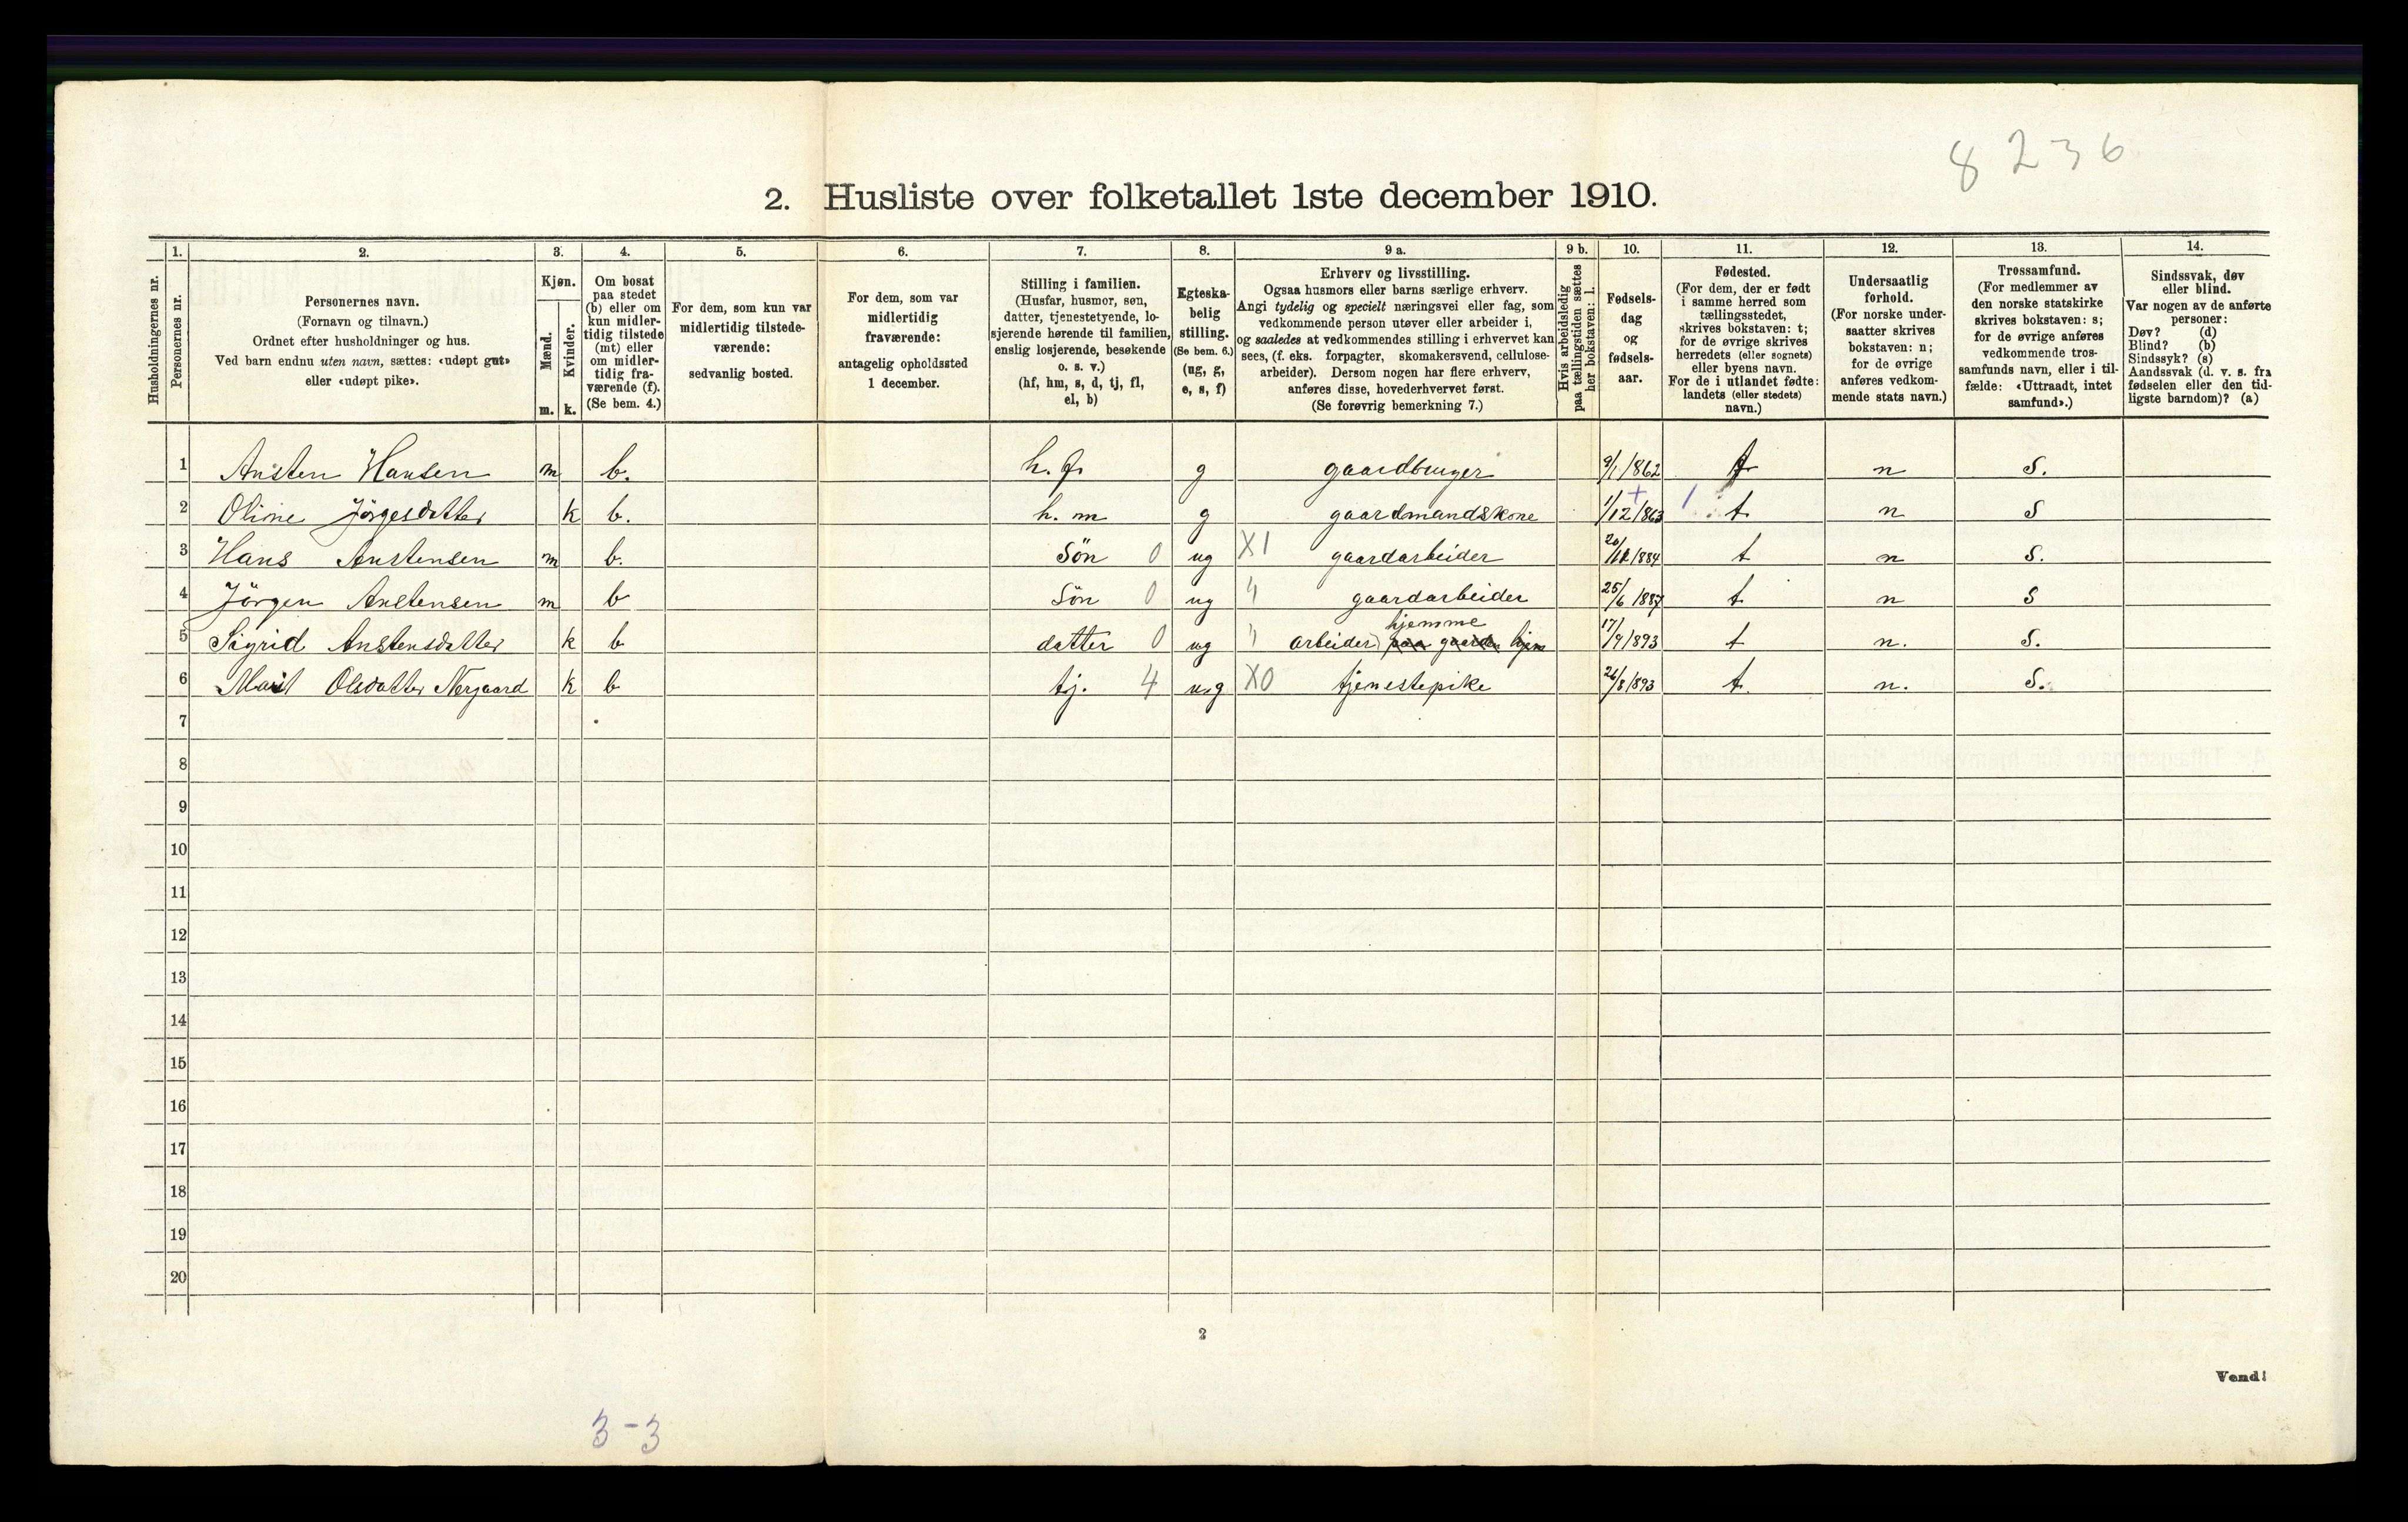 8 2 3 6
2. Husliste over folketallet 1ste december 1910.
Husholdningernes nr.
1.
Personernes nr.
2.
Personernes navn.
(Fornavn og tilnavn.)
Ordnet efter husholdninger og hus.
Ved barn endnu uten navn, sættes: «udøpt gut»
eller «udøpt pike».
3.
Kjøn.
Mænd.
Kvinder.
m. k.
4.
Om bosat
paa stedet
(b) eller om
kun midler-
tidig tilstede
(mt) eller
om midler-
tidig fra-
værende (f).
(Se bem. 4.)
5.
For dem, som kun var
midlertidig tilstede-
værende:
sedvanlig bosted.
6.
For dem, som var
midlertidig
fraværende:
antagelig opholdssted
1 december.
7.
Stilling i familien.
(Husfar, husmor, søn,
datter, tjenestetyende, lo-
sjerende hørende til familien,
enslig losjerende, besøkende
o. s. v.)
(hf, hm, s, d, tj, fl,
el, b)
8.
Egteska-
belig
stilling.
(Se bem. 6.)
(ug, g,
e, s, f)
9 a.
Erhverv og livsstilling.
Ogsaa husmors eller barns særlige erhverv.
Angi tydelig og specielt næringsvei eller fag, som
vedkommende person utøver eller arbeider i,
og saaledes at vedkommendes stilling i erhvervet kan
sees, (f. eks. forpagter, skomakersvend, cellulose-
arbeider). Dersom nogen har flere erhverv,
anføres disse, hovederhvervet først.
(Se forøvrig bemerkning 7.)
9 b.
Hvis arbeidsledig
paa tællingstiden sættes
her bokstaven: l.
10.
Fødsels-
dag
og
fødsels-
aar.
11.
Fødested.
(For dem, der er født
i samme herred som
tællingsstedet,
skrives bokstaven: t;
for de øvrige skrives
herredets (eller sognets)
eller byens navn.
For de i utlandet fødte:
landets (eller stedets)
navn.)
12.
Undersaatlig
forhold.
(For norske under-
saatter skrives
bokstaven: n;
for de øvrige
anføres vedkom-
mende stats navn.)
13.
Trossamfund.
(For medlemmer av
den norske statskirke
skrives bokstaven: s;
for de øvrige anføres
vedkommende tros-
samfunds navn, eller i til-
fælde: «Uttraadt, intet
samfund».)
14.
Sindssvak, døv
eller blind.
Var nogen av de anførte
personer:
Døv? (d)
Blind? (b)
Sindssyk? (s)
Aandssvak (d. v. s. fra
fødselen eller den tid-
ligste barndom)? (a)
1 Ansten Hansen m b. h. f. g gaardbruger 9/1 1862 t n S.
2 Oline Jörgesdatter k b. h. m g gaardmandskone 1/12 1863 t n S
3 Hans Anstensen m b. Sön 0 ug X1 gaardarbeider 1884 t n S.
4 Jörgen Anstensen m b Sön 0 ug " gaardarbeider 25/6 1887 t n S
hjemme
5 Sigrid Anstensdatter k b datter 0 ug " arbeider paa gaarden hjem 17/9 1893 t n. S.
6 Marit Olsdatter Nergaard k b tj. 4 ug X0 tjenestepike 26/8 1893 t. n. S.
7
8
9
10
11
12
13
14
15
16
17
18
19
20
2
Vend!
3-3